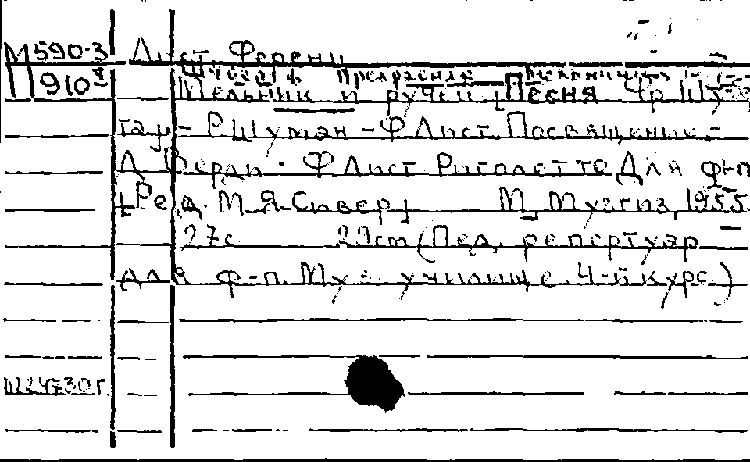 М590-3 Лист, Ференц
П910
Мельник и ручей [Песня Фр. Шу
Р. Шуман - Ф. Лист. Посвящение.-
Д. Верди - Ф. Лист. Риголетто Для ф-п
[Ред. М.Я. Сивер] М., Музгиз, 1955
27с 29cm (Пед. репертуар
для ф-п. Муз. училище. 4-й курс.)